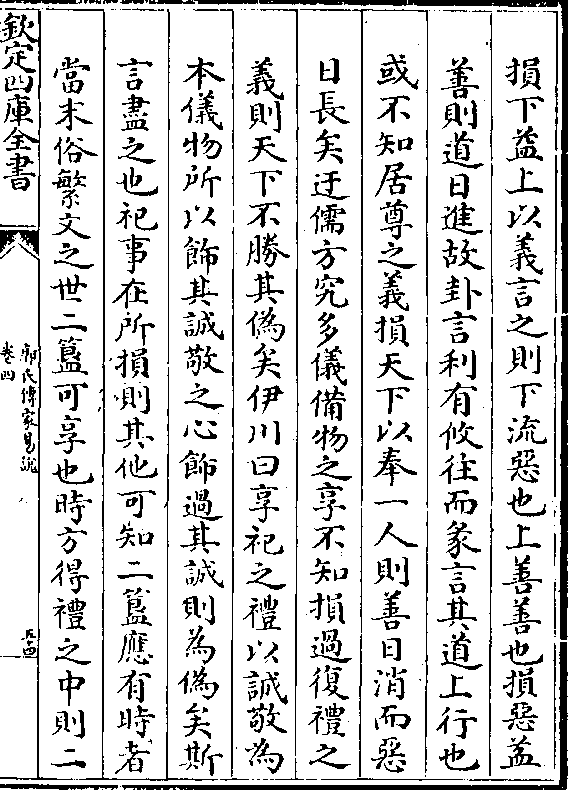 損下益上以義言之則下流惡也上善善也損惡益
善則道日進故卦言利有攸往而彖言其道上行也
或不知居尊之義損天下以奉一人則善日消而惡
日長矣迂儒方究多儀備物之享不知損過復禮之
義則天下不勝其偽矣伊川曰享祀之禮以誠敬為
本儀物所以飾其誠敬之心飾過其誠則為偽矣斯
言盡之也祀事在所損則其他可知二簋應有時者
當末俗繁文之世二簋可享也時方得禮之中則二
欽定四庫全書
郭氏傳家易說
卷四
五十四